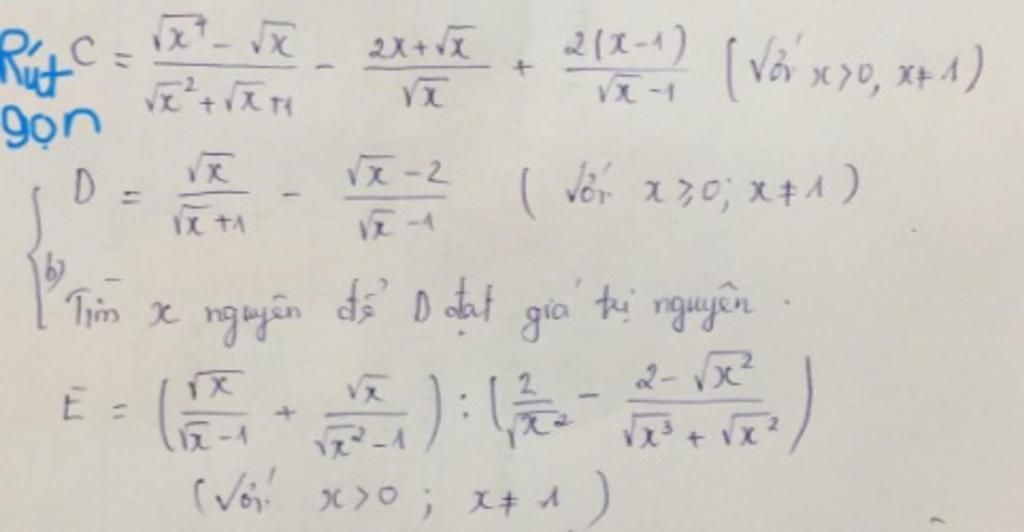 Rút gọn C = \frac{\sqrt{x}^4 - \sqrt{x}}{\sqrt{x}^2 + \sqrt{x} + 1} - \frac{2x + \sqrt{x}}{\sqrt{x}} + \frac{2(x-1)}{\sqrt{x} - 1} (Với x>0, x≠1)
D = \frac{\sqrt{x}}{\sqrt{x} + 1} - \frac{\sqrt{x} - 2}{\sqrt{x} - 1} (Với x ⩾ 0; x≠1)
b) Tìm x nguyên để D đạt giá trị nguyên.
E = (\frac{\sqrt{x}}{\sqrt{x} - 1} + \frac{\sqrt{x}}{\sqrt{x}^2 - 1}) : (\frac{2}{\sqrt{x}^2} - \frac{2 - \sqrt{x}^2}{\sqrt{x}^3 + \sqrt{x}^2})
(Với x>0; x≠1)